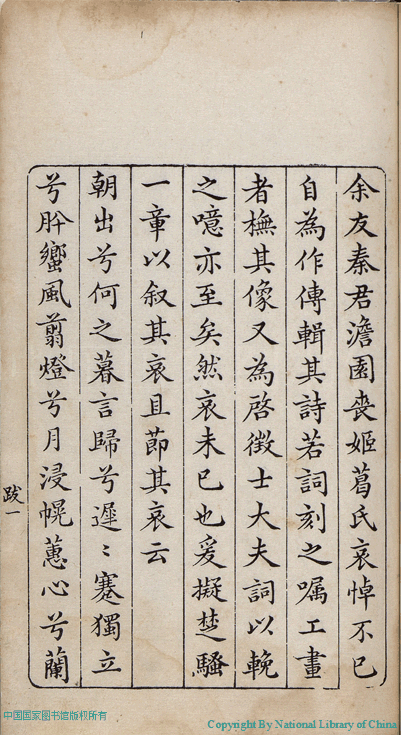 余友秦君澹園喪姬葛氏哀悼不已
自為作傳輯其詩若詞刻之嘱工畫
者橅其像又為啓徵士大夫詞以輓
之噫亦至矣然哀未已也爰擬楚騷
一章以叙其哀且節其哀云
朝出兮何之暮言歸兮遲〻蹇獨立
兮肸蠁風翦燈兮月浸幌蕙心兮蘭
跋一
中国国家图书馆版权所有
Copyright By National Library of China